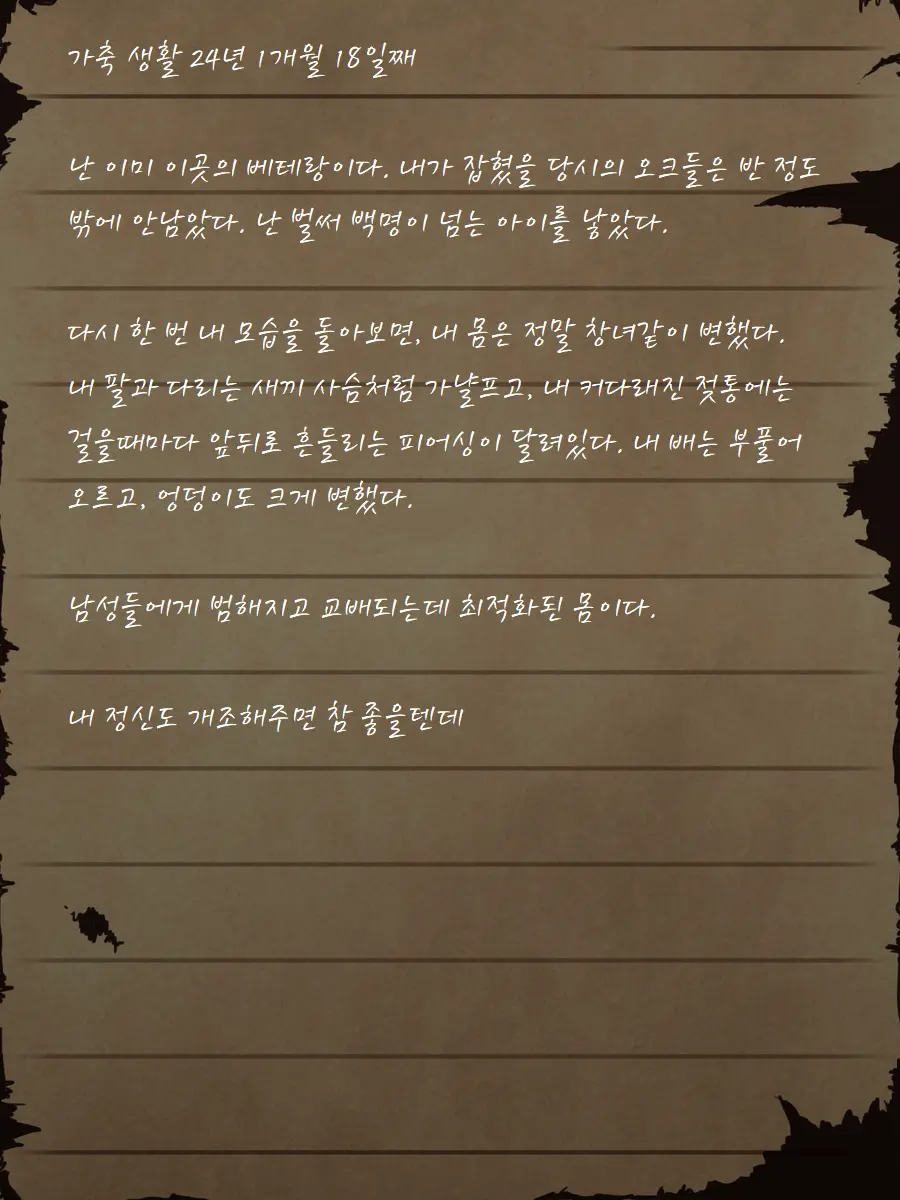 가축 생활 24년 1개월 18일째
난 이미 이곳의 베테랑이다. 내가 잡혔을 당시의 오크들은 반 정도
밖에 안남았다. 난 벌써 백명이 넘는 아이를 낳았다.
다시 한 번 내 모습을 돌아보면, 내 몸은 정말 창녀같이 변했다.
내 팔과 다리는 새끼 사슴처럼 가냘프고, 내 커다래진 젖통에는
걸을때마다 앞뒤로 흔들리는 피어싱이 달려있다. 내 배는 부풀어
오르고, 엉덩이도 크게 변했다.
남성들에게 범해지고 교배되는데 최적화된 몸이다.
내 정신도 개조해주면 참 좋을텐데